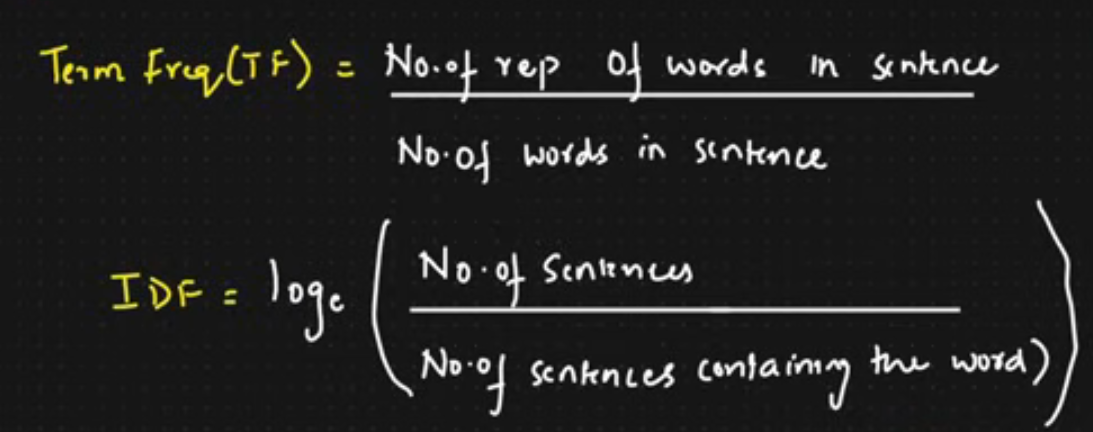 Term freq(TF) = No. of rep of words in sentence
No. of words in sentence
IDF = loge ( No. of Sentences
No. of sentences containing the word) )